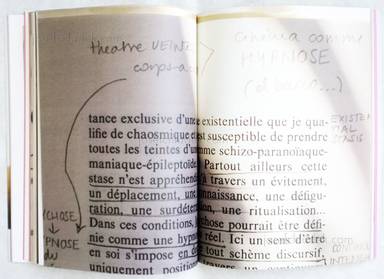 theatre VEINTE
corps-a
cinéma comme
HYPNOSE
tance exclusive d'une existentielle que je qua-
lifie de chaosmique et est susceptible de prendre
toutes les teintes d'un me schizo-paranoïaque-
maniaque-épileptoïde Partout ailleurs cette
stase n'est appréhendé à travers un évitement,
un déplacement, une connaissance, une défigu-
ration, une surdétermi ion, une ritualisation...
Dans ces conditions, chose pourrait être défi-
nie comme une hypn réel. Ici un sens d'être
en soi s'impose en de tout schème discursif,
uniquement position travers un
EXISTEN
TIAL
STASIS
CHOSE
PNOSE
du